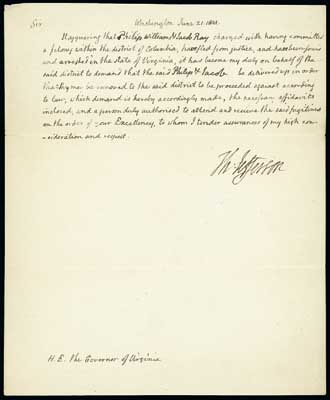 Sir Washington June 21. 1801.
It appearing that Philip Williams & Jacob Ray charged with having committed
a felony within the district of Columbia, have fled from justice, and have been found
and arrested in the state of Virginia, it has become my duty on behalf of the
said district to demand that the said Philip & Jacob be delivered up in order
that they may be removed to the said district to be proceeded against according
to law, which demand is hereby accordingly made, the necessary affidavits
inclosed, and a person duly authorised to attend and receive the said fugitives
on the order of your Excellency, to whom I tender assurances of my high con-
sideration and respect.
Th: Jefferson
H. E. the Governor of Virginia